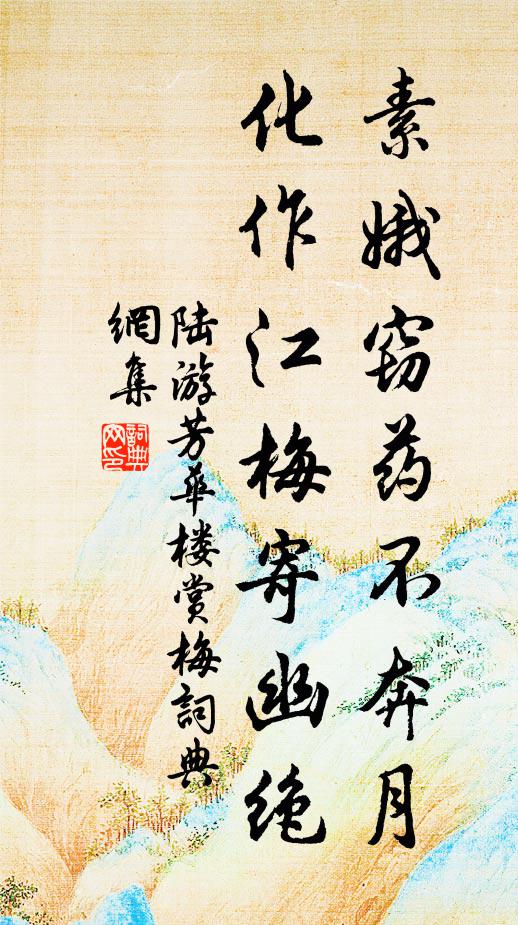 素娥窃药不奔月
化作江梅寄幽绝
陆游芳华楼赏梅詞典
網集
詞典
网印